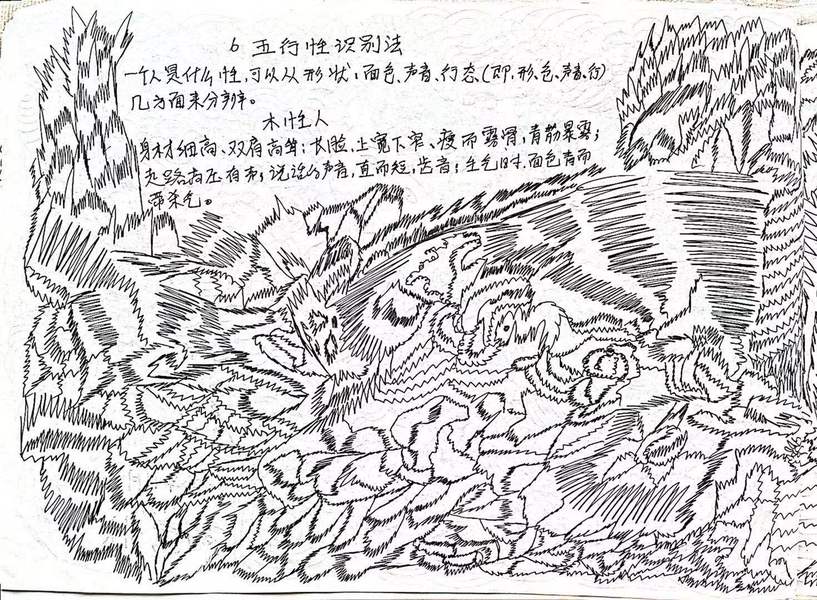 6 五行性识别法
一个人是什么性,可以从形状,面色、声音、行态(即,形、色、声、行)
几方面来分辨。
木性人
身材细高、双肩高耸;长脸、上宽下窄、瘦而露骨,青筋暴露;
走路高压有声;说话的声音,直而短,齿音;生气时,面色青而
带杀气。